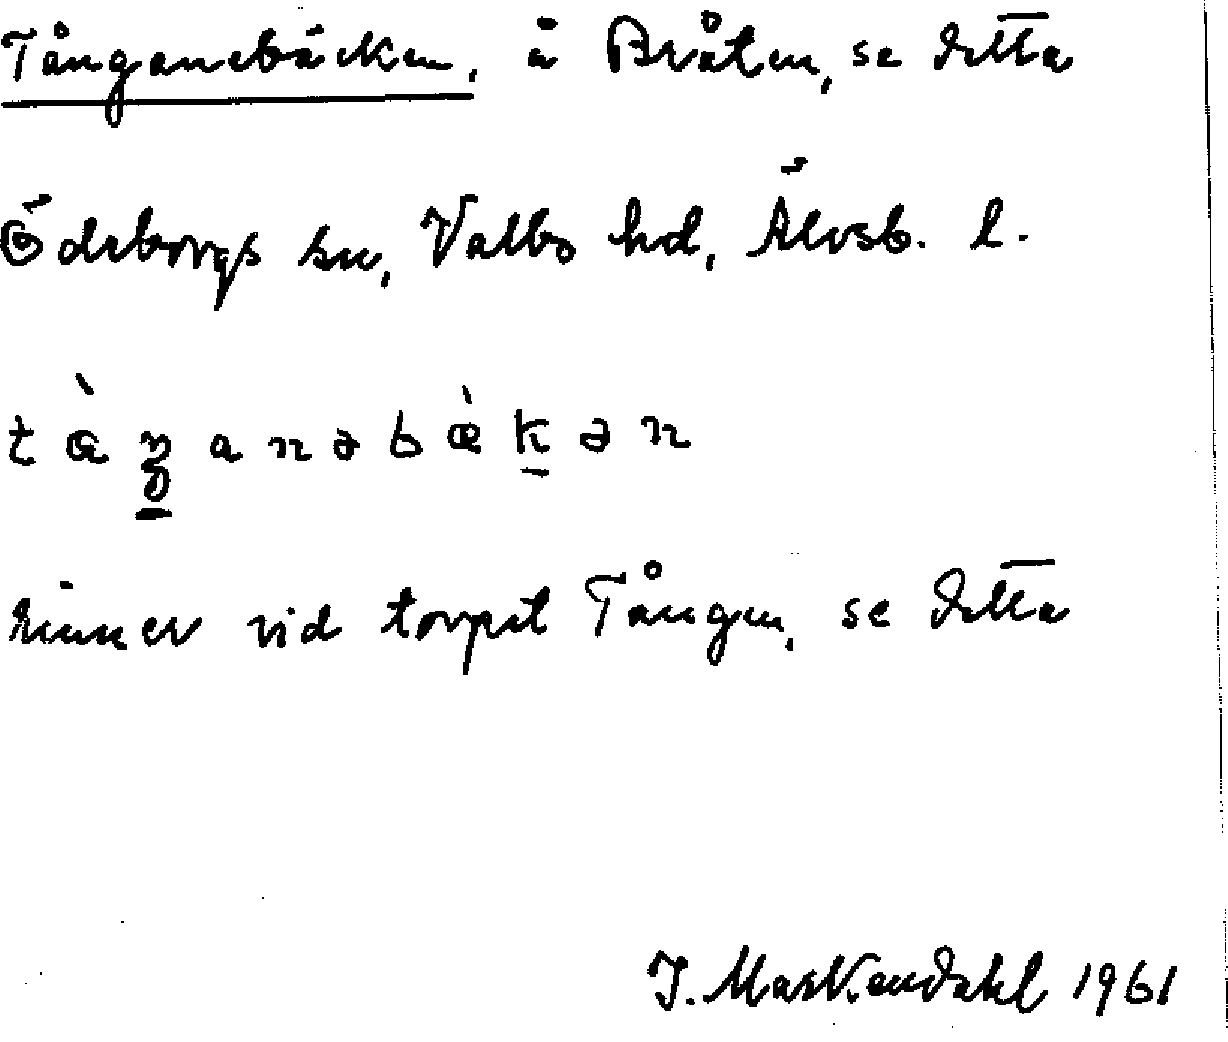 Tånganebäcken, å Bråten, se detta
Ödeborgs sn, Valbo hd, Älvsb. l.
tɑ̀ŋanəbæ̀kən
rinner vid torpet Tången, se detta
J. Maskendahl 1961